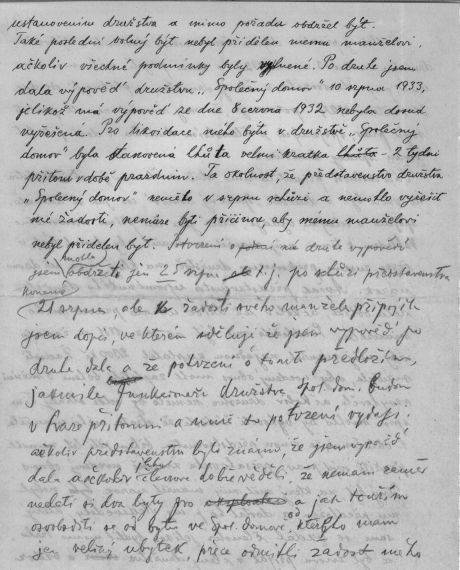 ustanovením družstva a mimo pořadu obdržel být.
Také poslední volný být nebyl přidělen mému manželovi,
ačkoliv všecdné podmínky byly vyplnené. Po druhé jsem
dala výpověď družstvu „Společný domov" 10 srpna 1933,
jelikož má výpověď ze dne 8 června 1932 nebyla dosud
vyřešena. Pro likvidace mého bytu v družstvě „Společný
domov" byla stanovená lhůta velmi kratka lhůta - 2 týdni
přitom v době prazdnin. Ta okolnost, že představenstvo družstva
„Společný domov" nemělo v srpnu schůzi a nemohlo vyřešit
mé žadosti, nemůže byti příčinou, aby mému manželovi
nebyl přidělen být. Potvrzení o mé druhé výpovědi
jsem mohla obdržeti jen 25 srpna t.j. po schůzi představenstva
konané
21 srpna, ale k žadosti svého manžela připojila
jsem dopis, ve kterém sděluji že jsem výpověď po
druhé dala a že potvrzení o tomto předložím,
jakmile funkcionáři družstva Spol. dom. budou
v Praze přítomni a mně to potvrzení vydají.
ačkoliv představenstvu bylo známo, že jsem výpověď
dala a ačkoliv členové dobře věděli, že nemám záměr
nechati si dva byty pro a jak toužím
osvoboditi se od bytu ve spol. domově, od kterého mám
jen veliký ubytek, přece odmítli žadost mého